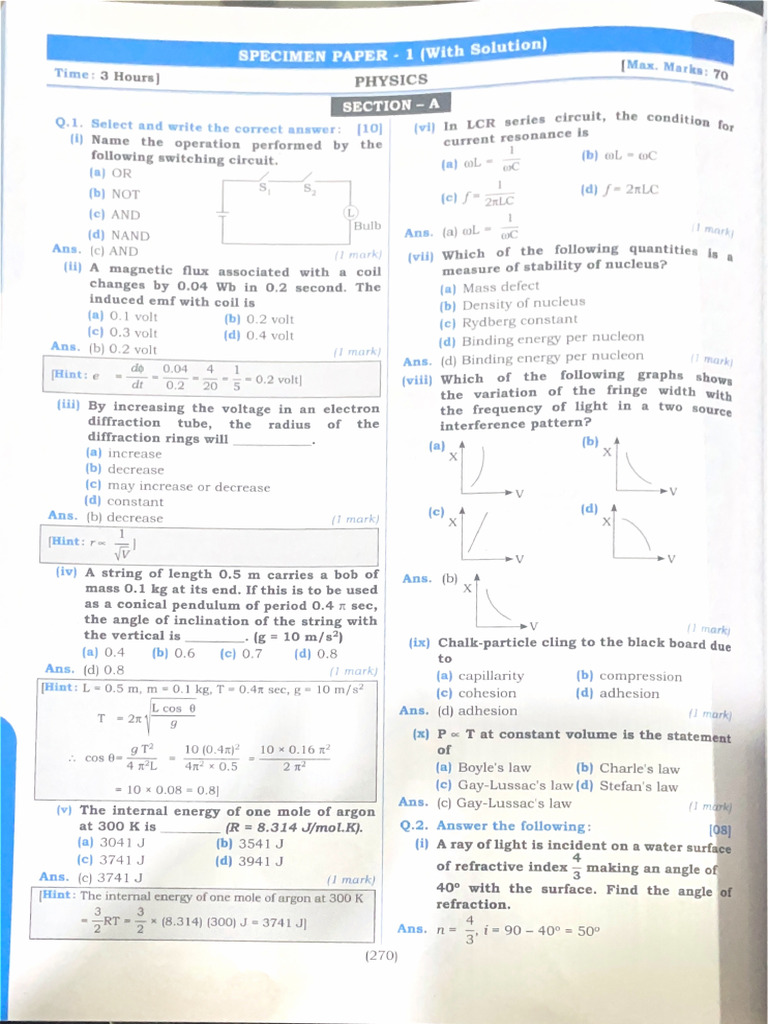 SPECIMEN PAPER - 1 (With Solution)
Time: 3 Hours]
PHYSICS
[Max. Marks: 70
SECTION – A
Q.1. Select and write the correct answer: [10]
(i) Name the operation performed by the
following switching circuit.
(a) OR
(b) NOT
(c) AND
(d) NAND
S₁ S₂
L
Bulb
Ans. (c) AND (1 mark)
(ii) A magnetic flux associated with a coil
changes by 0.04 Wb in 0.2 second. The
induced emf with coil is
(a) 0.1 volt (b) 0.2 volt
(c) 0.3 volt (d) 0.4 volt
Ans. (b) 0.2 volt (1 mark)
[Hint: e = dϕ/dt = 0.04/0.2 = 4/20 = 1/5 = 0.2 volt]
(iii) By increasing the voltage in an electron
diffraction tube, the radius of the
diffraction rings will ________.
(a) increase
(b) decrease
(c) may increase or decrease
(d) constant
Ans. (b) decrease (1 mark)
[Hint: r ∝ 1/√V]
(iv) A string of length 0.5 m carries a bob of
mass 0.1 kg at its end. If this is to be used
as a conical pendulum of period 0.4 π sec,
the angle of inclination of the string with
the vertical is ________. (g = 10 m/s²)
(a) 0.4 (b) 0.6 (c) 0.7 (d) 0.8
Ans. (d) 0.8 (1 mark)
[Hint: L = 0.5 m, m = 0.1 kg, T = 0.4π sec, g = 10 m/s²
T = 2π√(L cos θ/g)
∴ cos θ = g T²/4 π²L = 10 (0.4π)²/4π² × 0.5 = 10 × 0.16 π²/2 π²
= 10 × 0.08 = 0.8]
(v) The internal energy of one mole of argon
at 300 K is ________ (R = 8.314 J/mol.K).
(a) 3041 J (b) 3541 J
(c) 3741 J (d) 3941 J
Ans. (c) 3741 J (1 mark)
[Hint: The internal energy of one mole of argon at 300 K
= 3/2 RT = 3/2 × (8.314) (300) J = 3741 J]
(vi) In LCR series circuit, the condition for
current resonance is
(a) ωL = 1/ωC (b) ωL = ωC
(c) f = 1/2πLC (d) f = 2πLC
Ans. (a) ωL = 1/ωC (1 mark)
(vii) Which of the following quantities is a
measure of stability of nucleus?
(a) Mass defect
(b) Density of nucleus
(c) Rydberg constant
(d) Binding energy per nucleon
Ans. (d) Binding energy per nucleon (1 mark)
(viii) Which of the following graphs shows
the variation of the fringe width with
the frequency of light in a two source
interference pattern?
(a) X V (b) X V
(c) X V (d) X V
Ans. (b) X V (1 mark)
(ix) Chalk-particle cling to the black board due
to
(a) capillarity (b) compression
(c) cohesion (d) adhesion
Ans. (d) adhesion (1 mark)
(x) P ∝ T at constant volume is the statement
of
(a) Boyle's law (b) Charle's law
(c) Gay-Lussac's law (d) Stefan's law
Ans. (c) Gay-Lussac's law (1 mark)
Q.2. Answer the following: [08]
(i) A ray of light is incident on a water surface
of refractive index 4/3 making an angle of
40° with the surface. Find the angle of
refraction.
Ans. n = 4/3, i = 90 – 40° = 50°
(270)